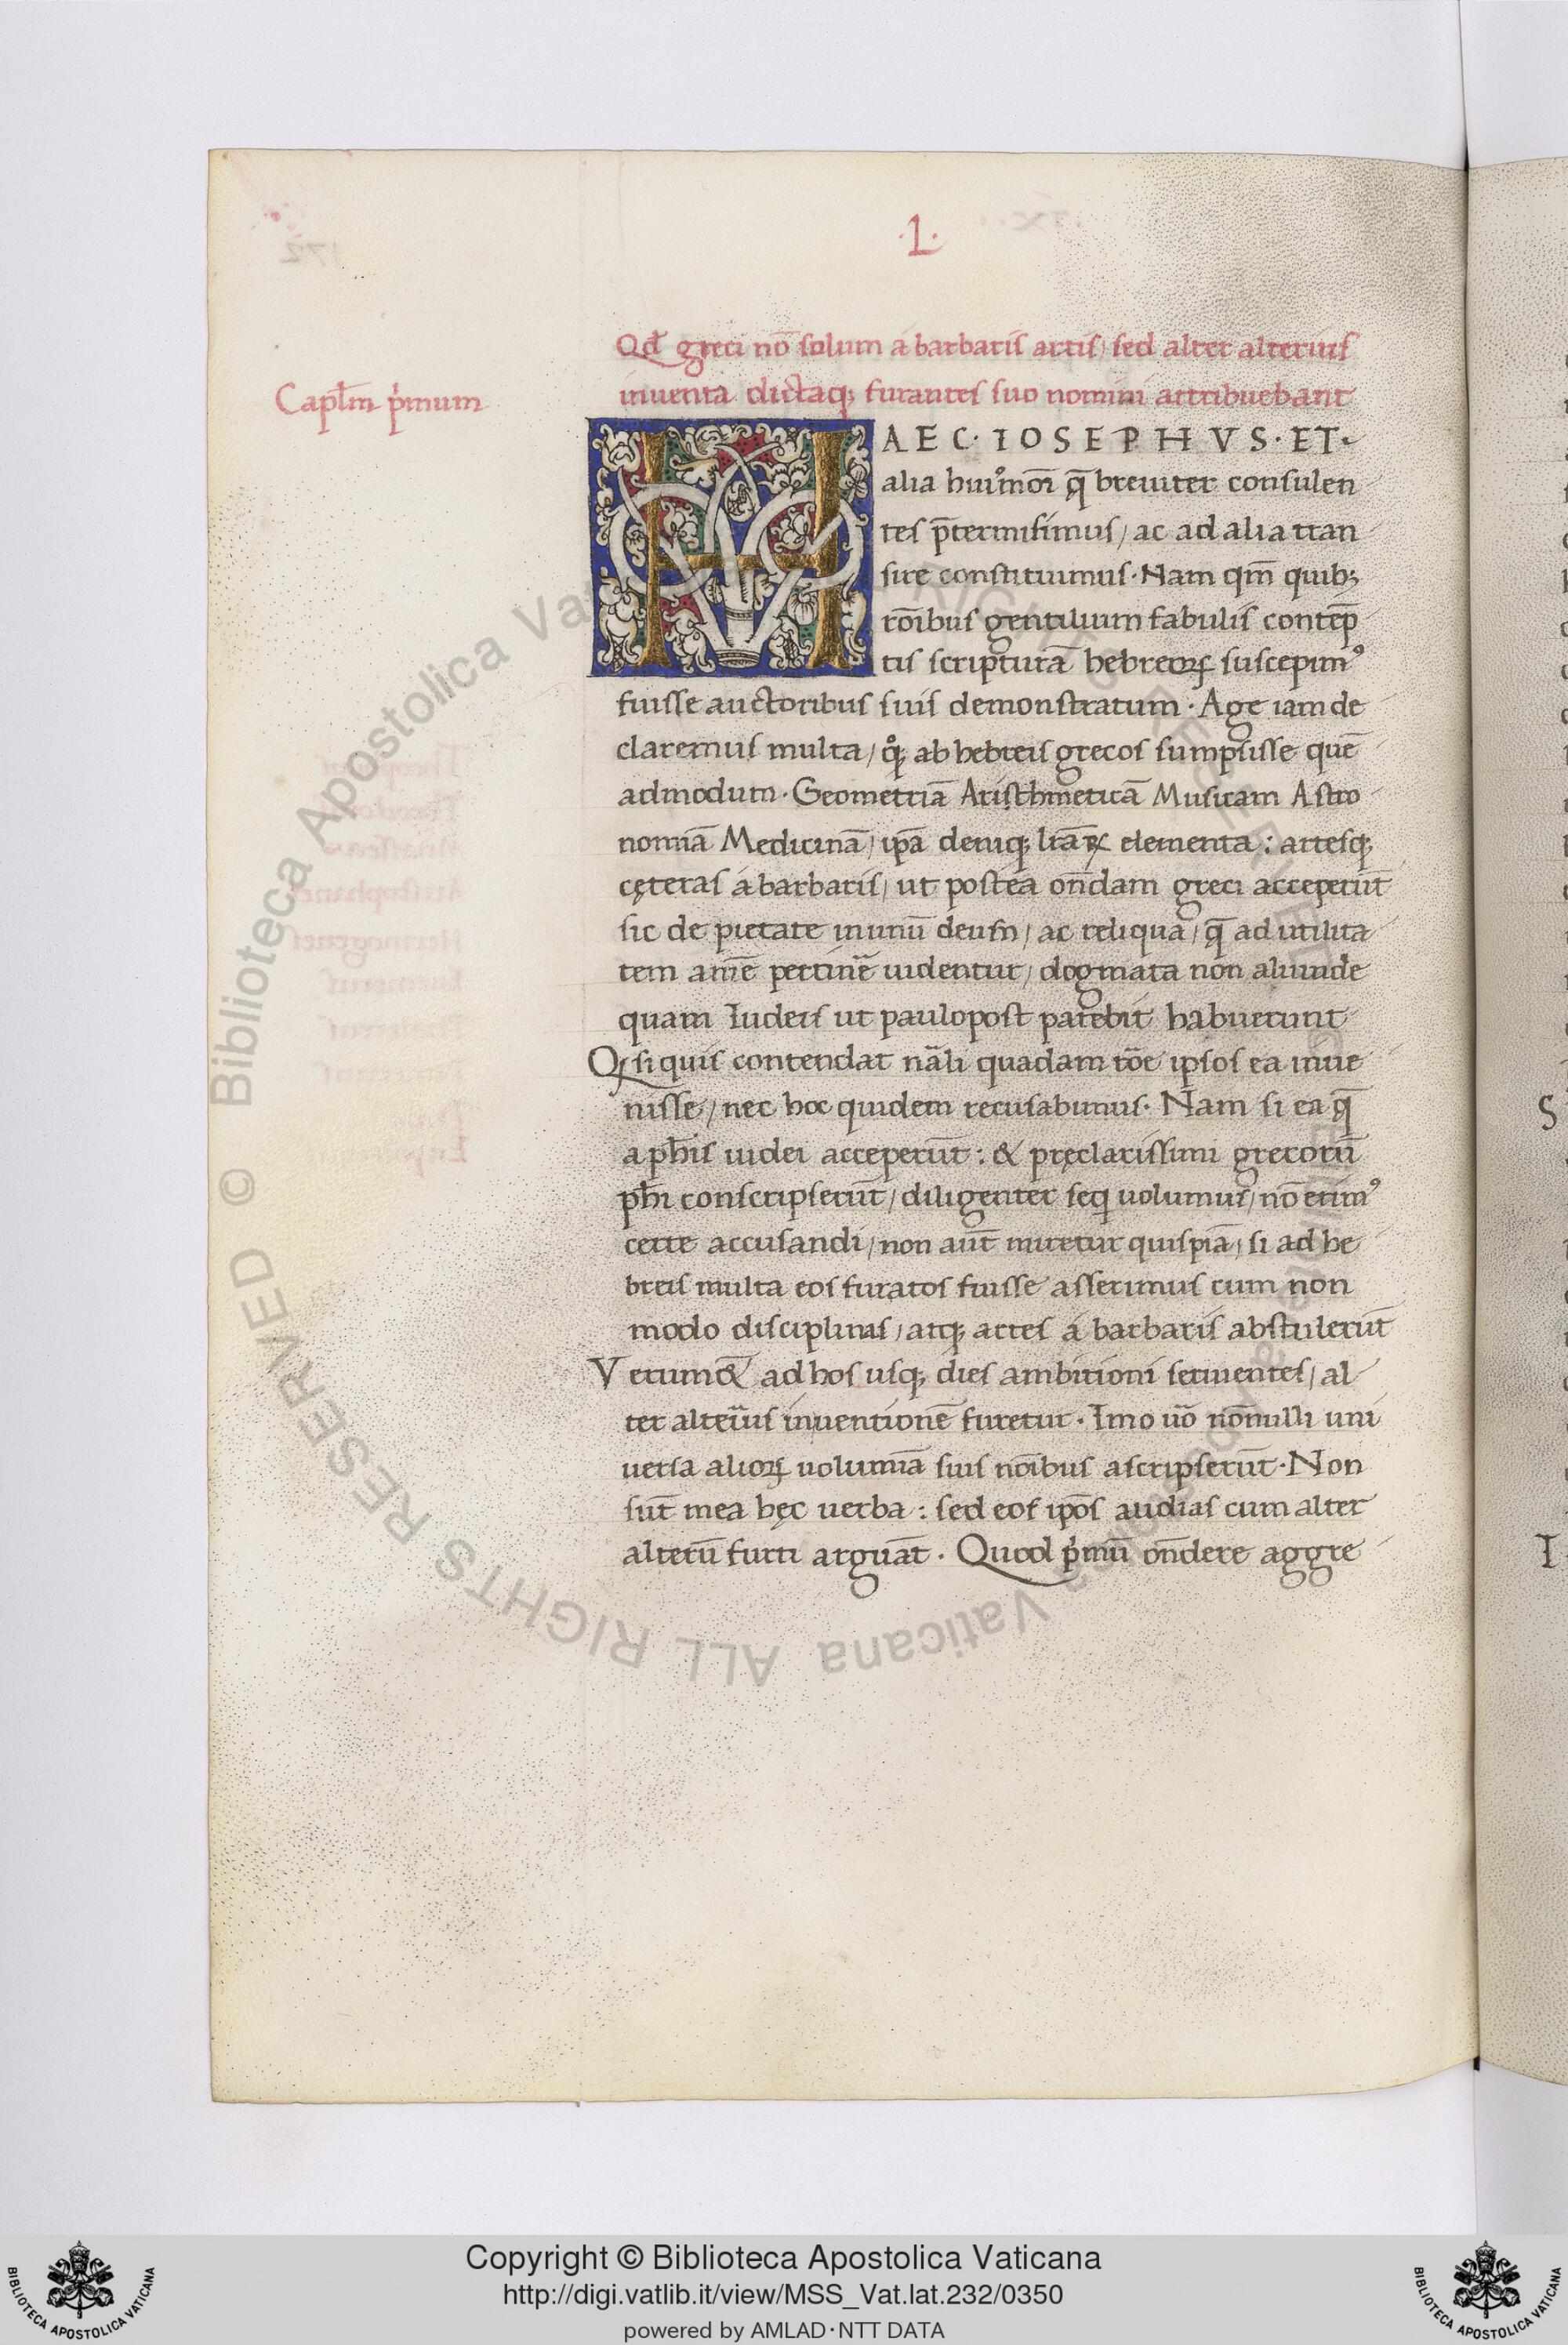 ·1·
Qđ greci nō solum á barbaris artis / sed alter alterius
Capl̄m pͥmum
inuenta dictaq; furantes suo nomini attribuebant
HAEC· IOSEPHVS· ET·
alia huiꝰmōi q̄ breuiter consulen
tes p̄termisimus / ac ad alia tran
sire constituimus· Nam qm̄ quib;
rōibus gentilium fabulis contēp
tis scripturā hebreoꝝ suscepimꝰ
fuisse auctoribus suis demonstratum· Age iam de
claremus multa / qͦꝫ ab hebreis grecos sumpsisse quē
admodum· Geometriā Aristhmeticā Musicam Astro
nomiā Medicinā / ip̄a deniq; lr̄aꝝ elementa : artesq;
cęteras á barbaris / ut postea on̄dam greci acceperūt
sic de pietate in unū deum / ac reliqua / q̄ ad utilita
tem anīe pertinē uidentur / dogmata non aliunde
quam Iudeis ut paulopost patebit habuerunt
Qꝫ si quis contendat nāli quadam rōe ipsos ea inue
nisse / nec hoc quidem recusabimus· Nam si ea q̄
a ph̄is iudei acceperūt : & pręclarissimi grecorū
ph̄i conscripserūt / diligenter seq uolumus / nō erimꝰ
certe accusandi / non aūt miretur quispiā / si ad he
breis multa eos furatos fuisse asserimus cum non
modo disciplinas / atq; artes á barbaris abstulerūt
Verum & ad hos usq; dies ambitioni seruientes / al
ter alteriͧus inuentionē furetur· Imo uō nōnulli uni
uersa alioꝝ uolumīa suis nōibus ascripserūt· Non
sūt mea hęc uerba : sed eos ip̄os audias cum alter
alterū furti arguāt· Quod pͥmū on̄dere aggre
S
I
© Biblioteca Apostolica Vaticana ALL RIGHTS RESERVED
Copyright © Biblioteca Apostolica Vaticana
http://digi.vatlib.it/view/MSS_Vat.lat.232/0350
powered by AMLAD·NTT DATA
BIBLIOTECA APOSTOLICA VATICANA
BIBLIOTECA APOSTOLICA VATICANA